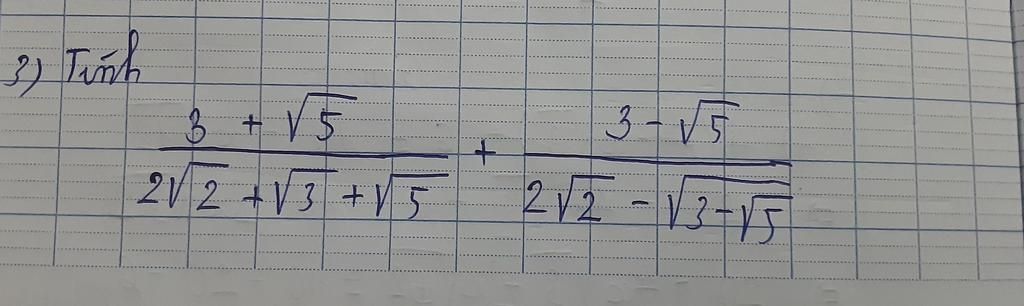 3) Tính
3 + √5 / 2√2 + √3 + √5 + 3 - √5 / 2√2 - √(3-√5)